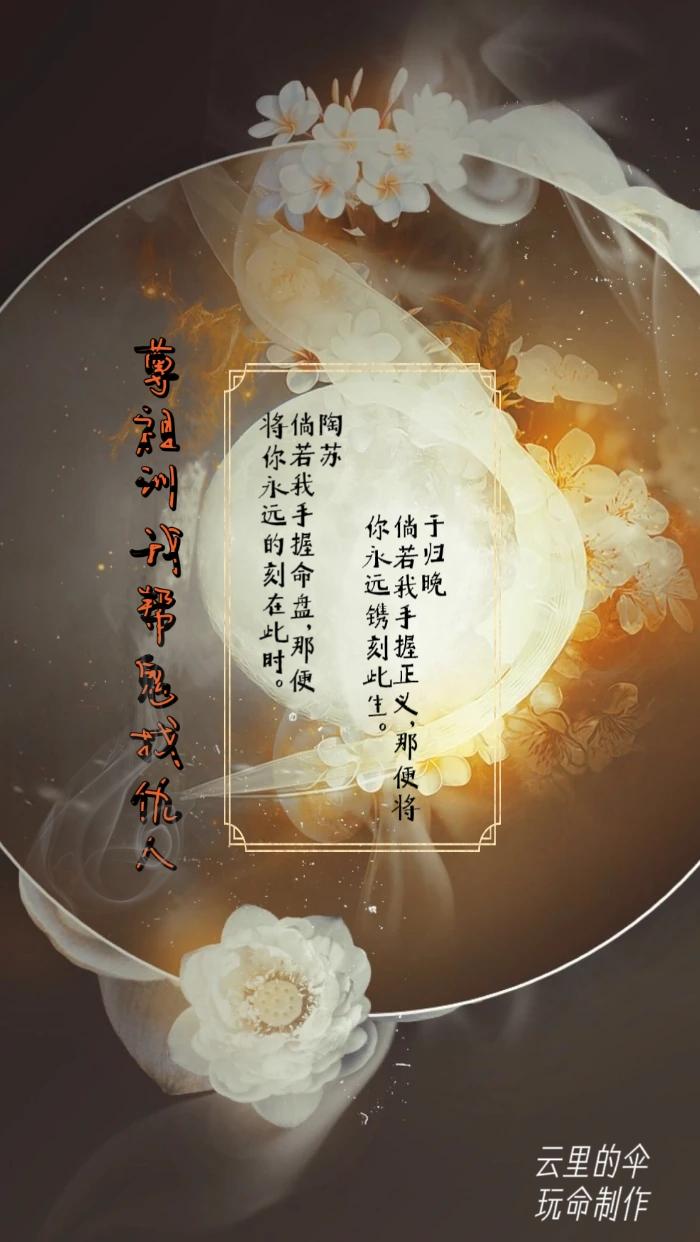 于归晚
倘若我手握正义，那便将
你永远镌刻此生。
陶苏
倘若我手握命盘，那便
将你永远的刻在此时。
尊祖训我帮鬼找仇人
云里的伞
玩命制作